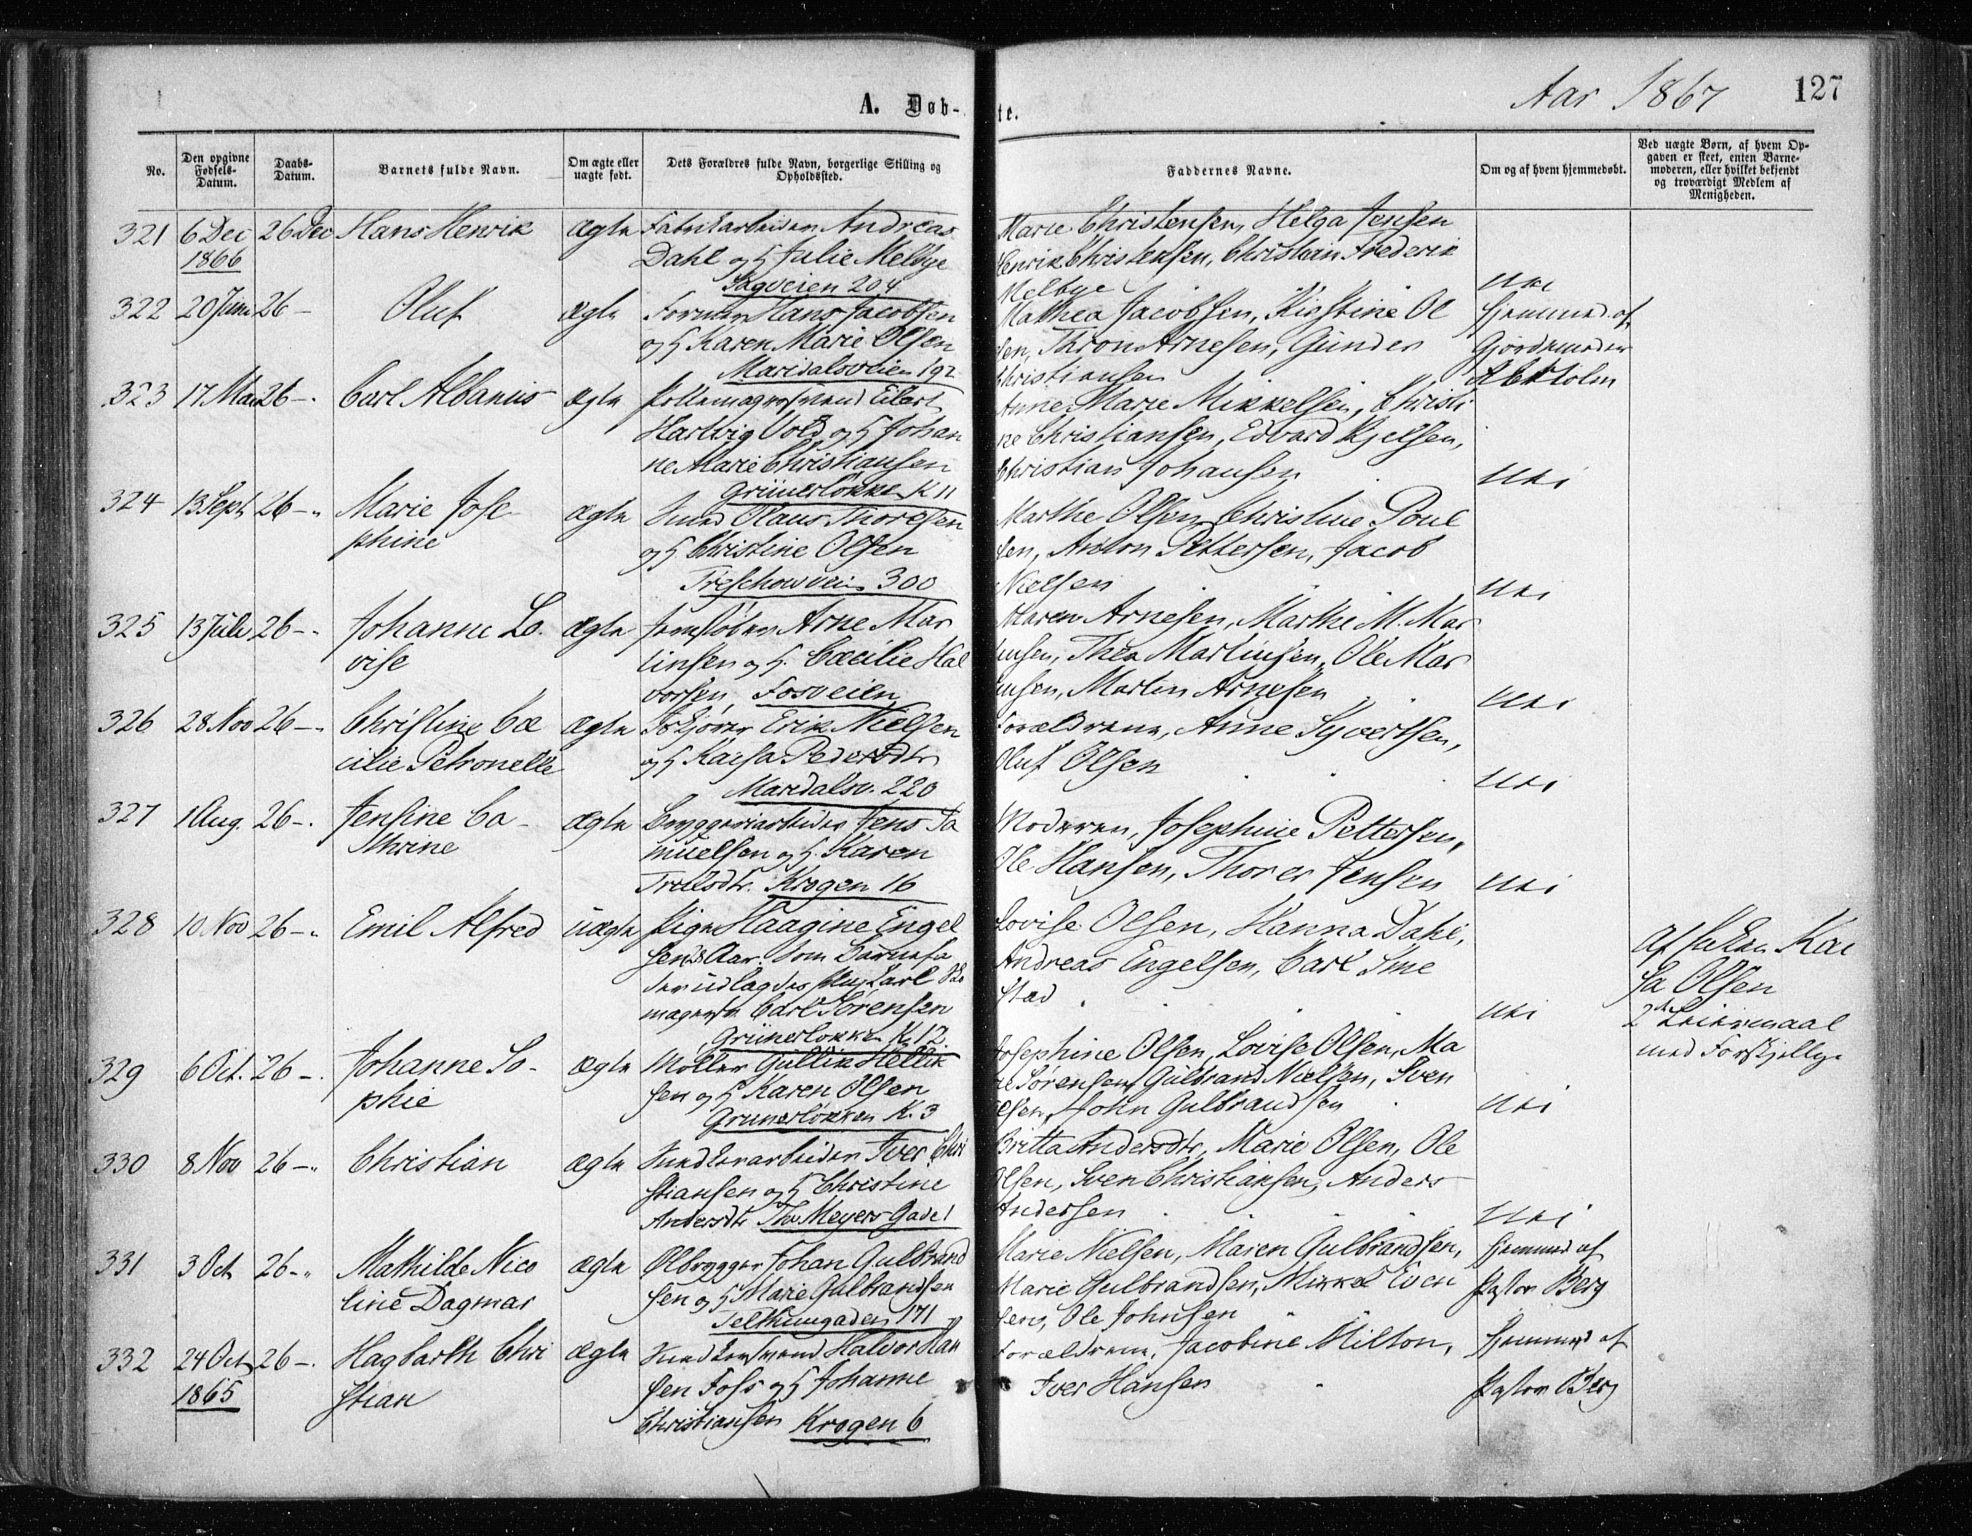 Aar 1867
127
A. Døb-
te.
No.
Den opgivne Fødsels-Datum.
Daabs-Datum.
Barnets fulde Navn.
Om ægte eller uægte født.
Dets Forældres fulde Navn, borgerlige Stilling og Opholdssted.
Faddernes Navne.
Om og af hvem hjemmedøbt.
Ved uægte Børn, af hvem Op-
gaven er skeet, enten Barne-
moderen, eller hvilket bekjendt
og troværdigt Medlem af
Menigheden.
321 6 Dec 26 Dec Hans Henrik ægte Fabrikarbeider Andreas
1866 Dahl og H Julie Melbye
Sagveien 204
Marie Christensen, Helga Jensen
Henrik Christensen, Christian Frederik
Melbye
Nei
322 20 Juni 26 - Oluf ægte Former Hans Jacobsen
og H Karen Marie Olsen
Maridalsveien 192
Mathea Jacobsen, Kirstine Ol
sen, Thron Arnesen, Gunder
Christiansen
hjemmed. af
Gjordemoder
Holm
323 17 Mai 26 -. Carl Albanus ægte Pottemagersvend Eilert
Hartvig Vold og H Johan
ne Marie Christiansen
Grünerløkken K 11
Anne Marie Mikkelsen, Christi
ne Christiansen, Edvard Kjelsen,
Christian Johansen
Nei
324 13 Sept 26 -. Marie Jose-
phine
ægte Smed Claus Thoresen
og H Christine Olsen
Treschowveien 300
Marthe Olsen, Christine Poul
sen, Anton Pettersen, Jacob
Nielsen
Nei
325 13 Juli 26 -. Johanne Lo-
vise
ægte Jernstøber Arne Mar
tinsen og H. Cæcilie Hal
vorsen, Fosveien
Maren Arnesen, Marthe M. Mar
tinsen, Thea Martinsen, Ole Mar
tinsen, Martin Arnesen
Nei
326 28 Nov 26 -. Christine Cæ
cilie Petronelle
ægte Erik Nielsen
og H Kaisa Pedersdtr
Maridalsv. 220
Forældrene, Anne Syvertsen,
Oluf Olsen
Nei
327 1 Aug. 26 -. Jensine Ca-
thrine
ægte Bryggeriarbeider Jens Sa
muelsen og H. Karen
Trulsdtr. Krogen 16
Moderen, Josephine Pettersen,
Ole Hansen, Thorer Jensen
Nei
328 10 Nov 26 -. Emil Alfred uægte Pige Haagine Engel
sen Aar. Som Barnefa
der udlagdes
Carl Sørensen
Grünerløkken K. 12.
Lovise Olsen, Hanna Dahl,
Andreas Engelsen, Carl Sme
stad
Nei
Af Kai
sa Olsen
2det Leiermaal
med Forskjellige
329 6 Oct. 26 -. Johanne So-
phie
ægte Møller Gullik Hellik
sen og H Karen Olsen
Grünerløkken K. 3
Josephine Olsen, Lovise Olsen, Ma
rie Sørensen, Gulbrand Nielsen, Sven
Olsen, John Gulbrandsen
Nei
330 8 Nov 26 -. Christian ægte Iver Chri
stiansen og H Christine
Andersdtr Thv Meyers Gade 1
Britta Andersdtr, Marie Olsen, Ole
Olsen, Sven Christiansen, Anders
Andersen
Nei
331 3 Oct 26 -. Mathilde Nico
line Dagmar
ægte Ølbrygger Johan Gulbrand
sen og H Marie Gulbrandsen
Telthusgaden 171
Marie Nielsen, Maren Gulbrandsen,
Marie Gulbrandsen, Mikkel Even
sen, Ole Johnsen
hjemmed af
Pastor Berg
332 24 Oct 26 -. Hagbarth Chri
1865 stian
ægte Halvor Han
sen Foss og H Johanne
Christiansen Krogen 6
Forældrene, Jacobine Milton,
Iver Hansen
hjemmed af
Pastor Berg